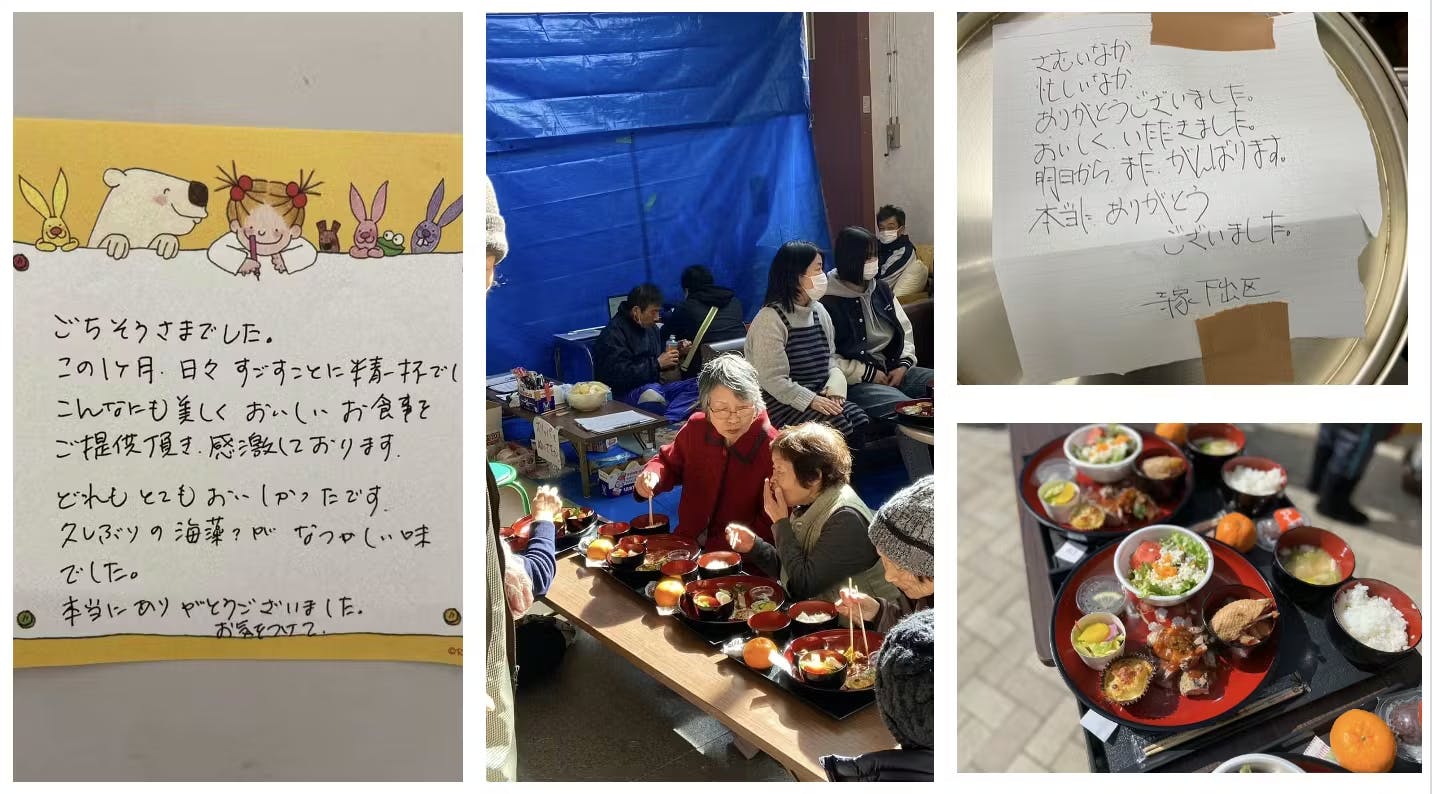 ごちそうさまでした。
この1ヶ月、日々すごすことに精一杯でし
こんなにも美しくおいしいお食事を
ご提供頂き、感激しております。
どれもとてもおいしかったです。
久しぶりの海藻?がなつかしい味
でした。
本当にありがとうございました。
お気をつけて。
さむいなか
忙しいなか
ありがとうございました。
おいしく、いただきました。
明日から、また、がんばります。
本当に、ありがとう
ございました。
下出区